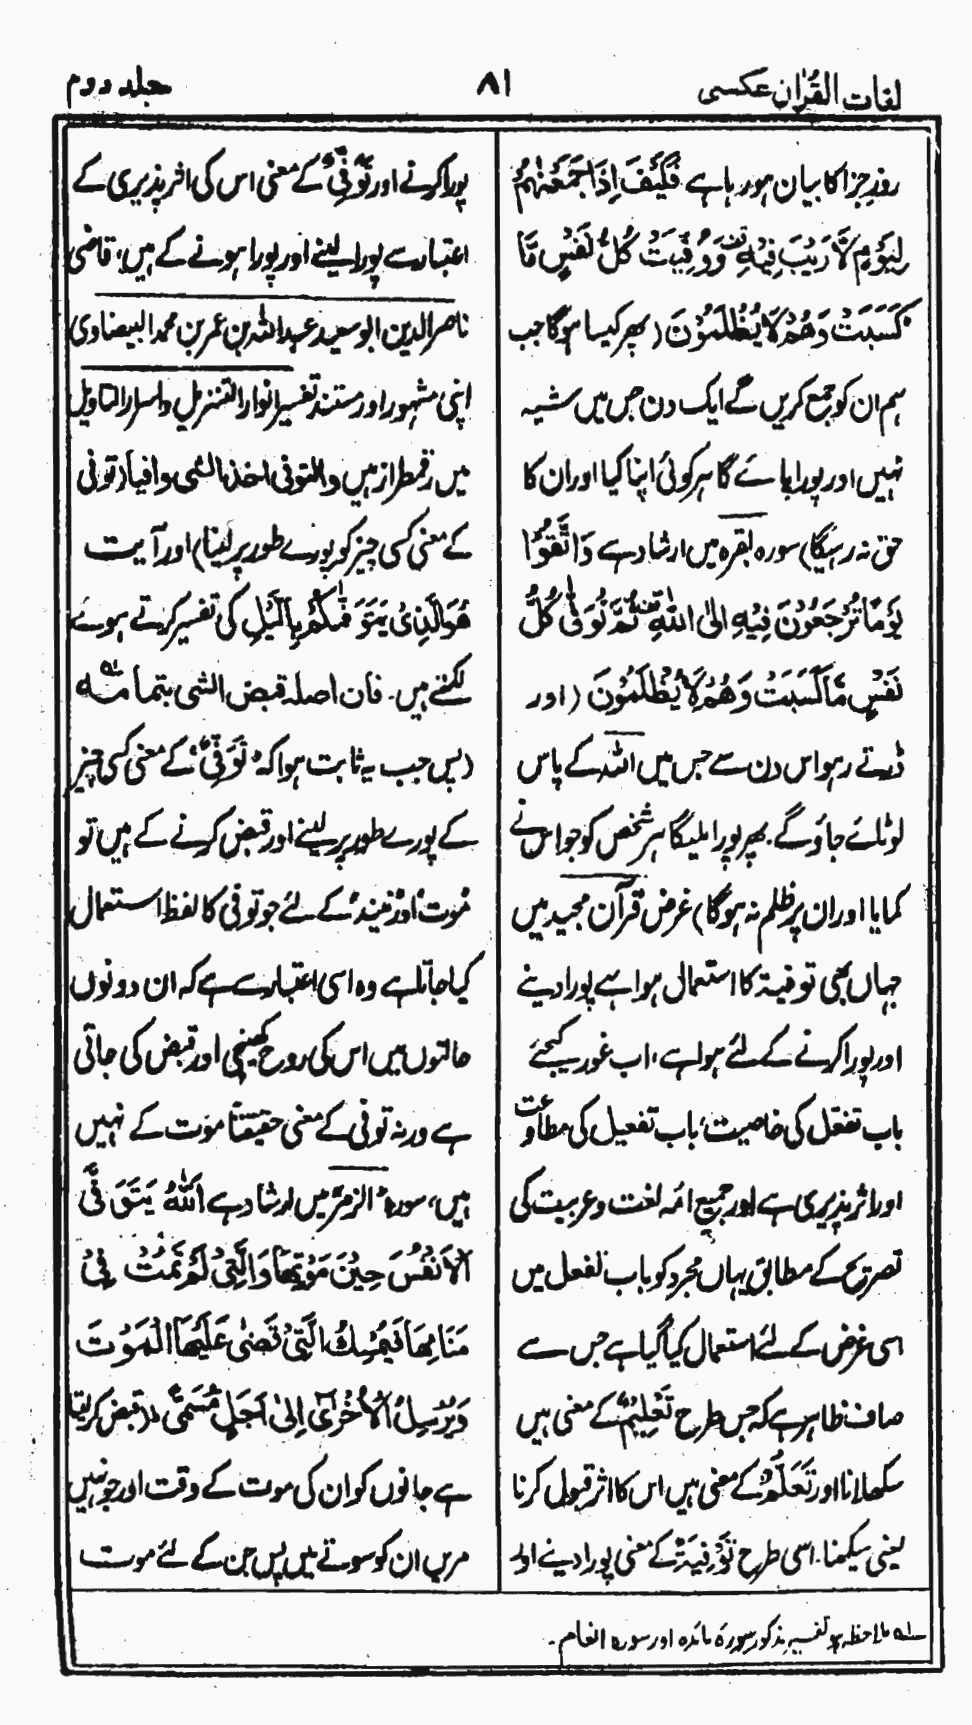 لغات القرآن عکسی
۸۱
جلد دوم
روزِ جزا کا بیان ہو رہا ہے فَکَیْفَ اِذَا جَمَعْنٰهُمْ
لِیَوْمٍ لَّا رَیْبَ فِیْهِ وَوُفِّیَتْ کُلُّ نَفْسٍ مَّا
کَسَبَتْ وَهُمْ لَا یُظْلَمُوْنَ (پھر کیسا ہوگا جب
ہم ان کو جمع کریں گے ایک دن جس میں شبہ
نہیں اور پورا پائے گا ہر کوئی اپنا کیا اور ان کا
حق نہ رہیگا) سورہ بقرہ میں ارشاد ہے وَاتَّقُوْا
یَوْمًا تُرْجَعُوْنَ فِیْهِ اِلَی اللّٰهِ ثُمَّ تُوَفّٰی کُلُّ
نَفْسٍ مَّا کَسَبَتْ وَهُمْ لَا یُظْلَمُوْنَ (اور
ڈرتے رہو اس دن سے جس میں اللہ کے پاس
لوٹائے جاؤ گے۔ پھر پورا ملیگا ہر شخص کو جو اس نے
کمایا اور ان پر ظلم نہ ہوگا) غرض قرآن مجید میں
جہاں بھی توفیۃ کا استعمال ہوا ہے پورا دینے
اور پورا کرنے کے لئے ہوا ہے، اب غور کیجئے
باب تفعّل کی خاصیت، باب تفعیل کی مطاوعت
اور اثر پذیری ہے اور جمیع ائمہ لغت و عربیت کی
تصریح کے مطابق یہاں مجرد کو باب تفعل میں
اسی غرض کے لئے استعمال کیا گیا ہے جس سے
صاف ظاہر ہے کہ جس طرح تَعْلِیْمٌ کے معنی ہیں
سکھلانا اور تَعَلُّمٌ کے معنی ہیں اس کا اثر قبول کرنا
یعنی سیکھنا۔ اسی طرح تَوْفِیَۃٌ کے معنی پورا دینے اور
پورا کرنے اور تَوَفِّیْ کے معنی اس کی اثر پذیری کے
اعتبار سے پورا لینے اور پورا ہونے کے ہیں، قاضی
ناصر الدین ابو سعید عبداللہ بن عمر بن محمد البیضاوی
اپنی مشہور اور مستند تفسیر انوار التنزیل و اسرار التاویل
میں رقمطراز ہیں والتوفی اخذ الشی وافیا (توفی
کے معنی کسی چیز کو پورے طور پر لینا) اور آیت
هُوَ الَّذِیْ یَتَوَفّٰکُمْ بِالَّیْلِ کی تفسیر کرتے ہوئے
لکھتے ہیں۔ فان اصلہ قبض الشی بتمامہ ؎۱
(پس جب یہ ثابت ہوا کہ تَوَفِّیْ کے معنی کسی چیز
کے پورے طور پر لینے اور قبض کرنے کے ہیں تو
مُوت اور نیند کے لئے جو توفی کا لفظ استعمال
کیا جاتا ہے وہ اسی اعتبار سے ہے کہ ان دونوں
حالتوں میں اس کی روح کھینچی اور قبض کی جاتی
ہے ورنہ توفی کے معنی حقیقتًا موت کے نہیں
ہیں، سورہ الزمر میں ارشاد ہے اَللّٰهُ یَتَوَفَّی
الْاَنْفُسَ حِیْنَ مَوْتِهَا وَالَّتِیْ لَمْ تَمُتْ فِیْ
مَنَامِهَا فَیُمْسِكُ الَّتِیْ قَضٰی عَلَیْهَا الْمَوْتَ
وَیُرْسِلُ الْاُخْرٰی اِلٰی اَجَلٍ مُّسَمًّی (قبض کرلیتا
ہے جانوں کو ان کی موت کے وقت اور جو نہیں
مریں ان کو سوتے میں پس جن کے لئے موت
؎۱ ملاحظہ ہو تفسیر مذکور سورۃ مائدہ اور سورہ انعام۔